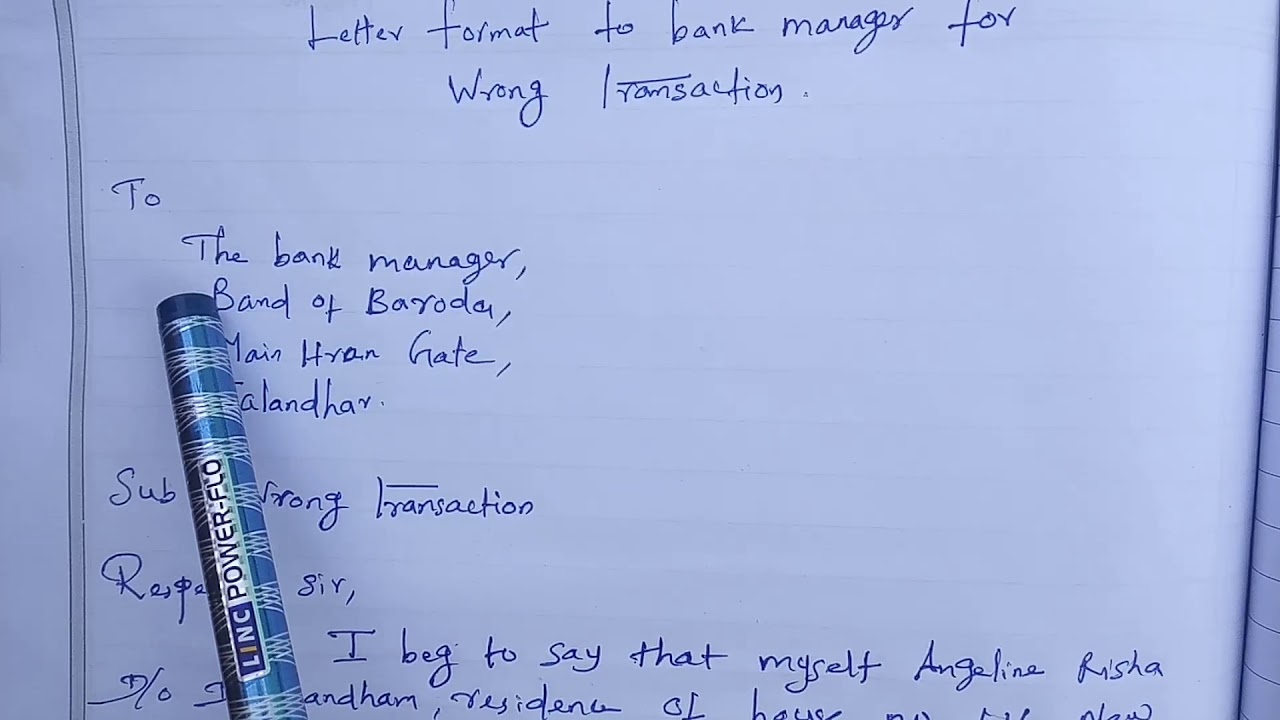 Letter format to bank manager for
Wrong Transaction.
To
The bank manager,
Band of Baroda,
Main Hran Gate,
Jalandhar.
Sub Wrong Transaction
sir,
I beg to say that myself Angeline Risha
D/o residence of house no
LINC POWER-FLO